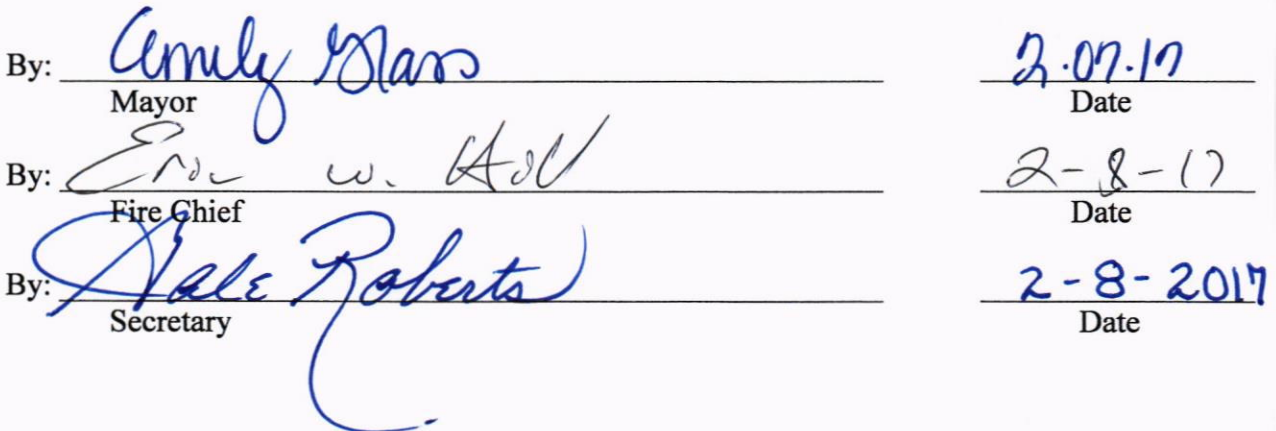 By: Emily Glass 2.07.17
Mayor Date
By: Eric W. Hall 2-8-17
Fire Chief Date
By: Gale Roberts 2-8-2017
Secretary Date